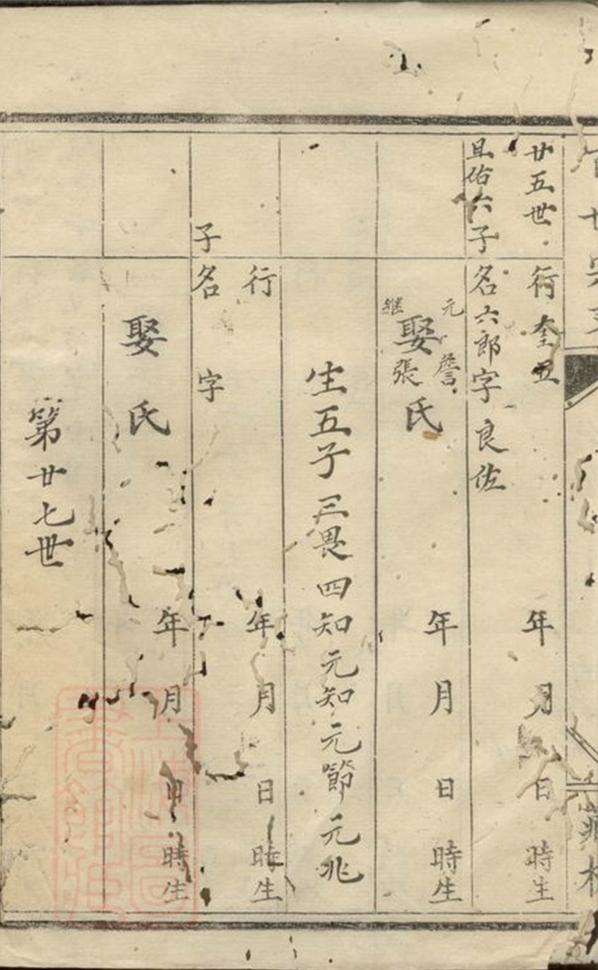 廿五世 行奎五 年 月 日 時生
子 名六郎字良佐
元詹
娶氏 年 月 日 時生
繼張
生五子三畏四知元知元節元兆
行 年 月 日 時生
子 名 字
娶 氏 年 月 日 時生
第廿七世